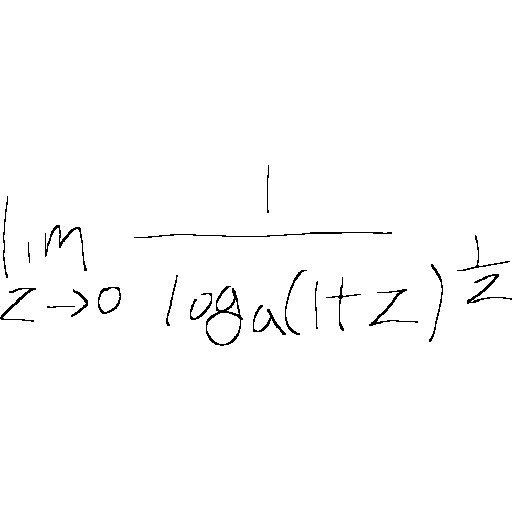 \lim_{z \to 0} \frac{1}{\log_a(1+z)^{\frac{1}{z}}}